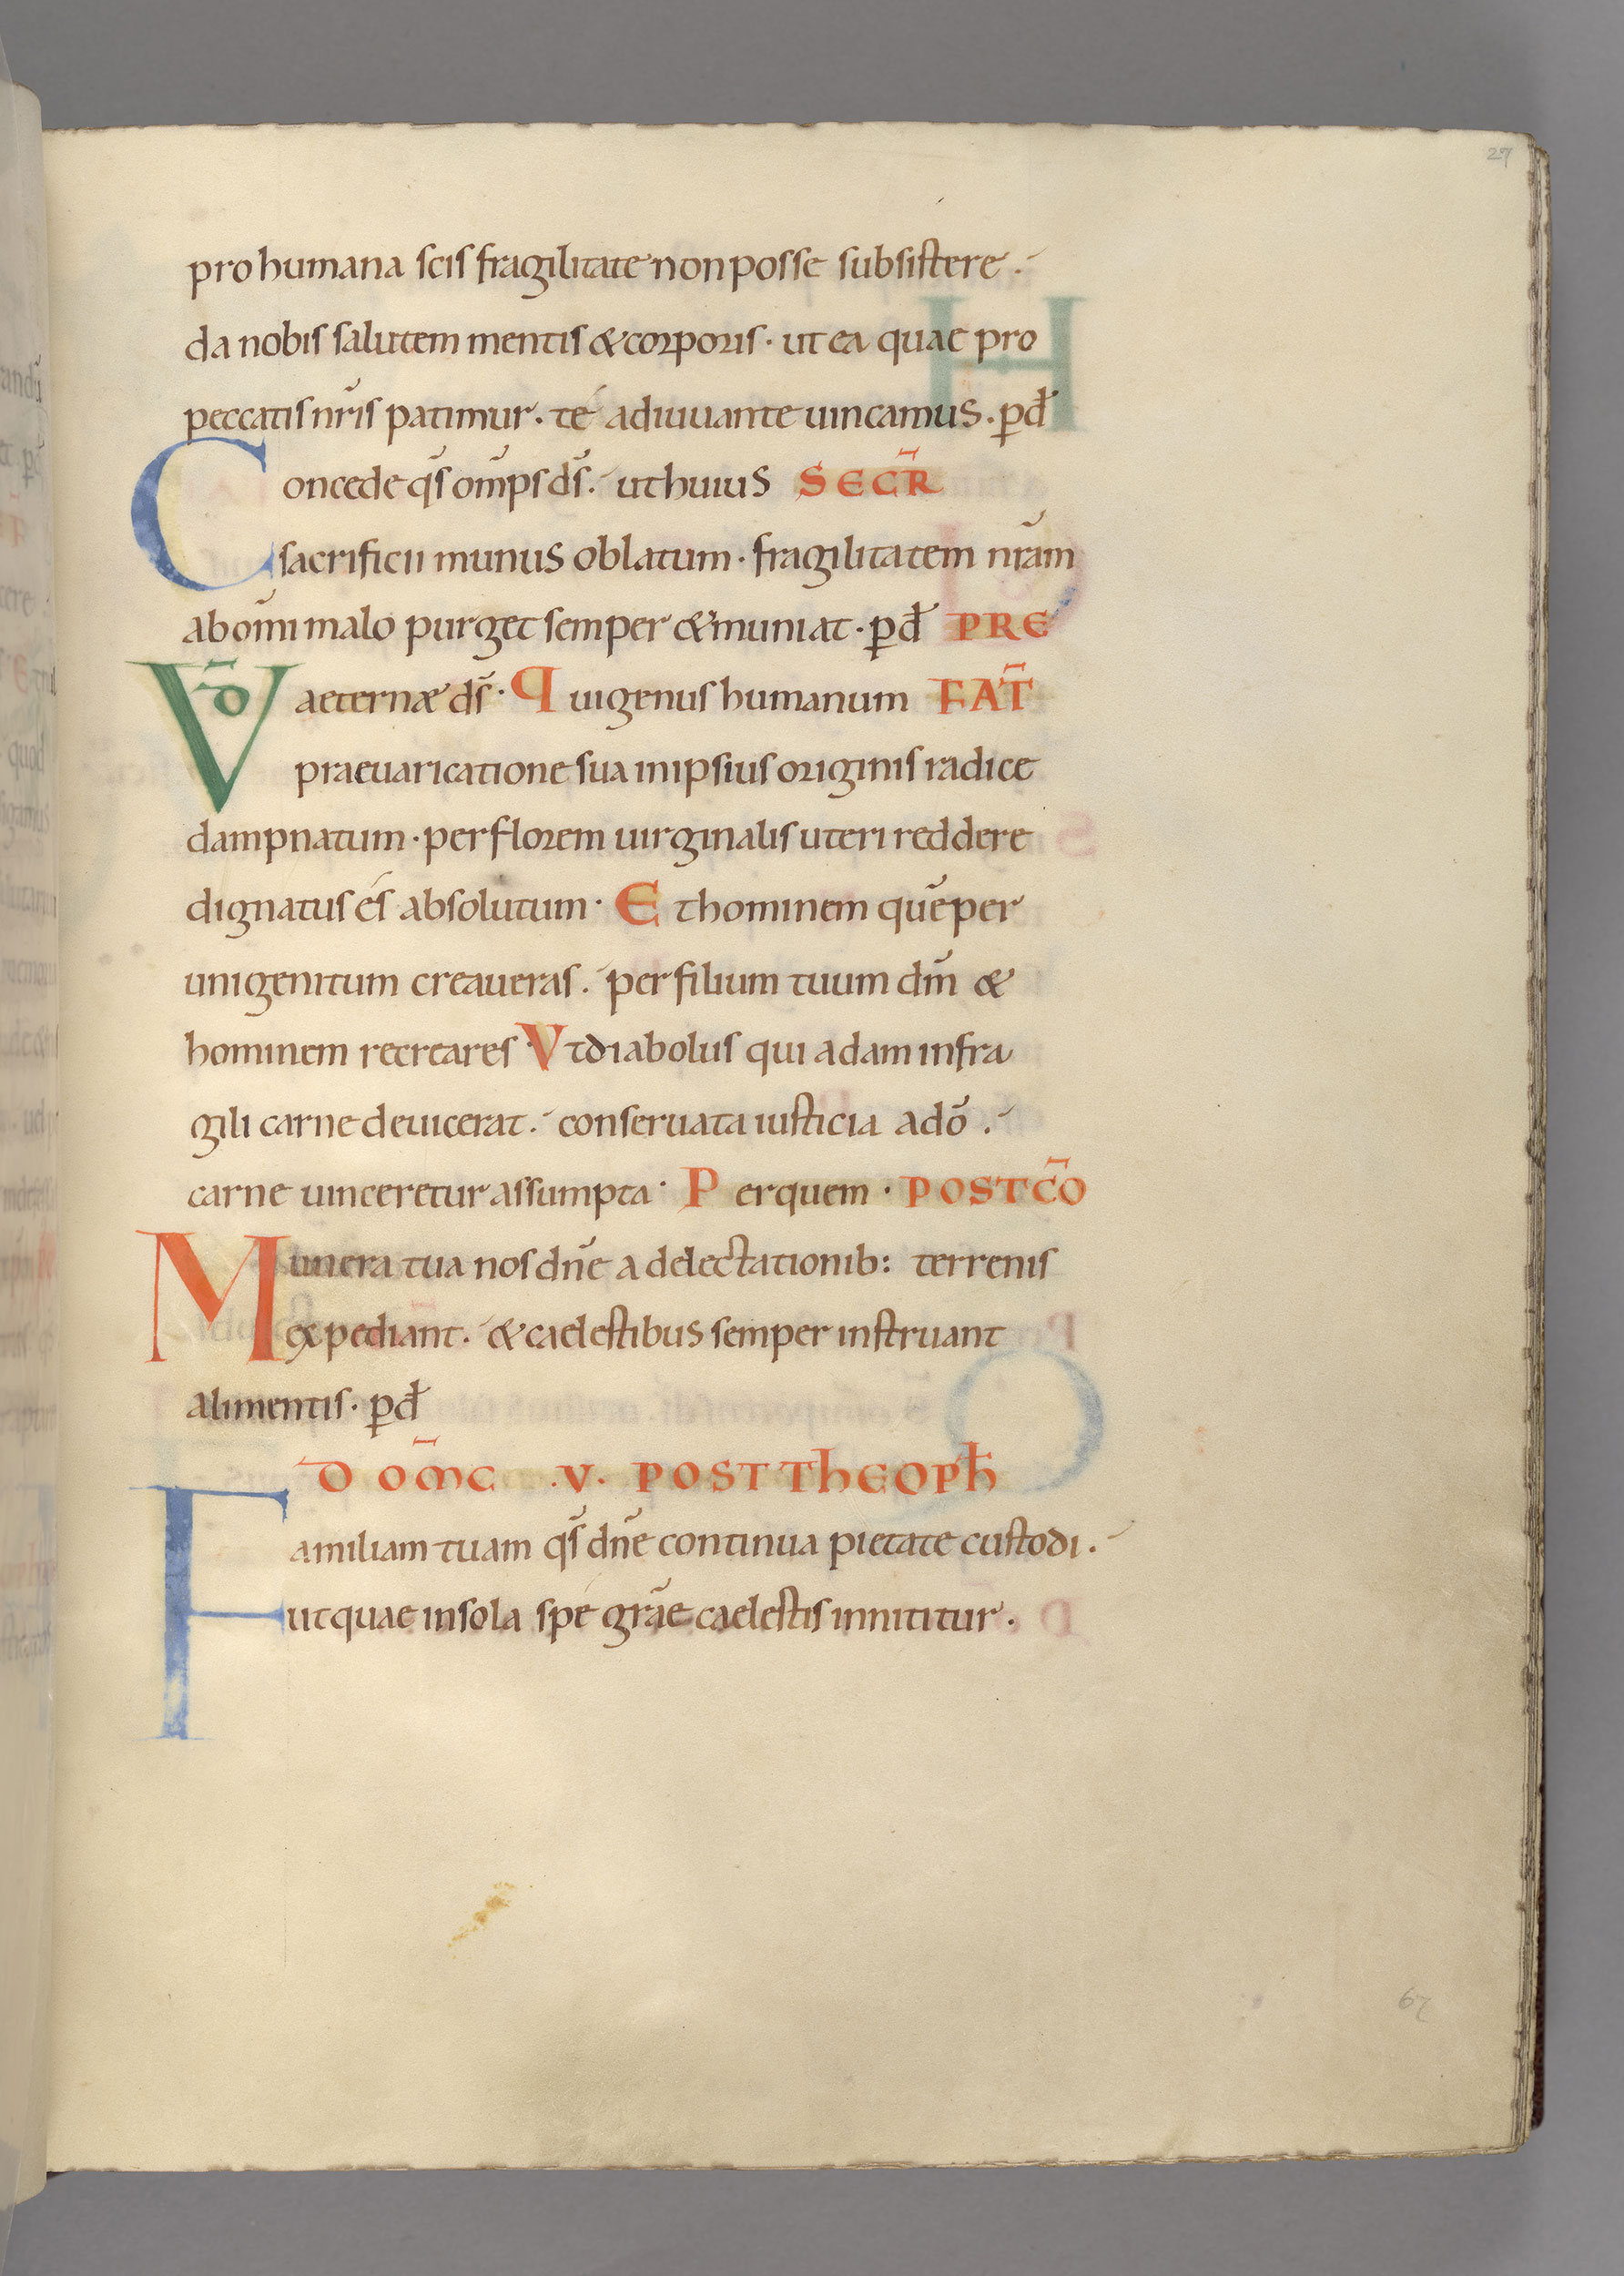 27
pro humana scis fragilitate non posse subsistere .
da nobis salutem mentis & corporis · ut ea quae pro
peccatis nr̃is patimur · té adiuuante uincamus · pđ
Concede qs̃ omp̃s ds̃ . ut huius SECR̃
sacrificii munus oblatum · fragilitatem nr̃am
ab om̃i malo purget semper & muniat · pđ PRE
VD̃ aeternae ds̃ · Qui genus humanum FAT̃
praeuaricatione sua in ipsius originis radice
dampnatum · per florem uirginalis uteri reddere
dignatus és absolutum · Et hominem quẽ per
unigenitum creaueras . per filium tuum dm̃ &
hominem recreares · Vt diabolus qui adam in fra
gili carne deuicerat . conseruata iusticia a dõ .
carne uinceretur assumpta · Per quem · POST CÕ
Munera tua nos dñe a delectationib: terrenis
expediant . & caelestibus semper instruant
alimentis · pđ
D OM̃C .V. POST THEOPĦ
Familiam tuam qs̃ dñe continua pietate custodi .
ut quae in sola spé gr̃ae caelestis innititur .
67